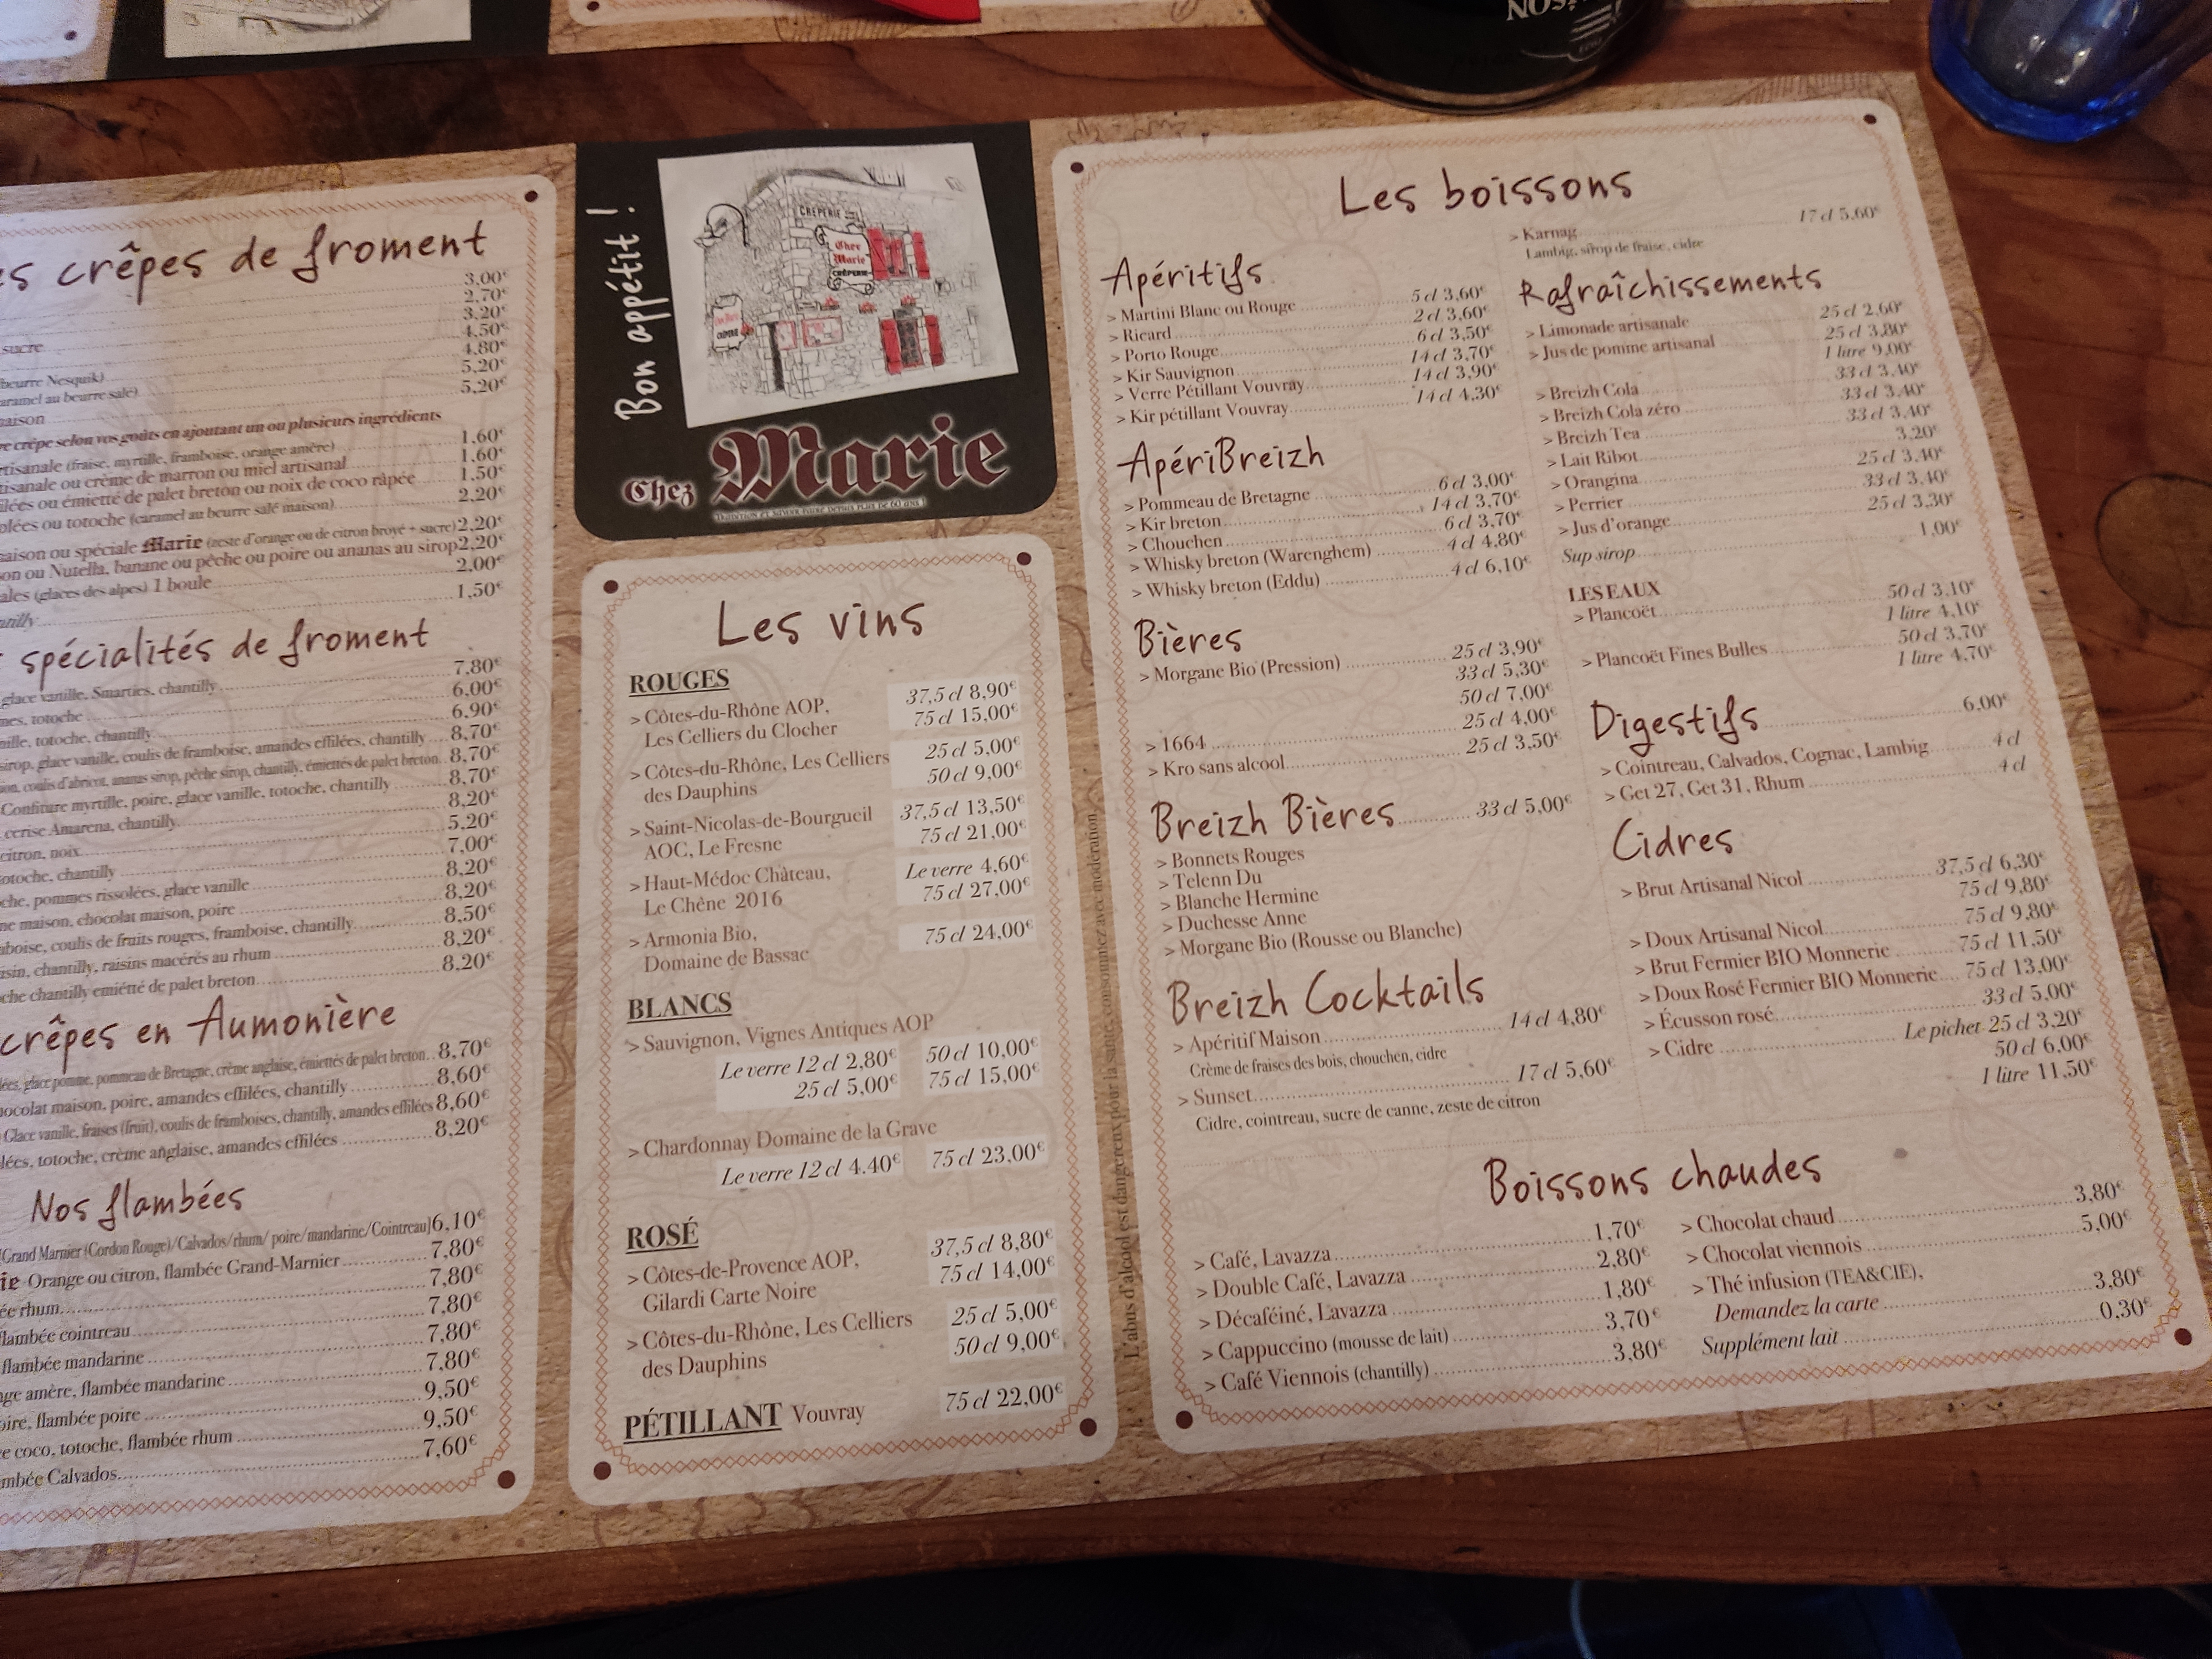 ISON
es crêpes de froment
3,00€
2,70€
3,20€
sucre 4,50€
4,80€
beurre Nesquik) 5,20€
caramel au beurre salé) 5,20€
maison
re crêpe selon vos goûts en ajoutant un ou plusieurs ingrédients
rtisanale (fraise, myrtille, framboise, orange amère) 1,60€
tisanale ou crème de marron ou miel artisanal 1,60€
ilées ou émietté de palet breton ou noix de coco râpée 1,50€
olées ou totoche (caramel au beurre salé maison) 2,20€
aison ou spéciale Marie (zeste d'orange ou de citron broyé + sucre) 2,20€
on ou Nutella, banane ou pêche ou poire ou ananas au sirop 2,20€
ales (glaces des alpes) 1 boule 2,00€
ntilly 1,50€
spécialités de froment
glace vanille, Smarties, chantilly 7,80€
nes, totoche 6,00€
nille, totoche, chantilly 6,90€
sirop, glace vanille, coulis de framboise, amandes effilées, chantilly 8,70€
on, coulis d'abricot, ananas sirop, pêche sirop, chantilly, émiettés de palet breton 8,70€
Confiture myrtille, poire, glace vanille, totoche, chantilly 8,70€
cerise Amarena, chantilly 8,20€
citron, noix 5,20€
otoche, chantilly 7,00€
che, pommes rissolées, glace vanille 8,20€
ne maison, chocolat maison, poire 8,20€
mboise, coulis de fruits rouges, framboise, chantilly 8,50€
isin, chantilly, raisins macérés au rhum 8,20€
che chantilly emiétté de palet breton 8,20€
crêpes en Aumonière
lées, glace pomme, pommeau de Bretagne, crème anglaise, émiettés de palet breton 8,70€
hocolat maison, poire, amandes effilées, chantilly 8,60€
Glace vanille, fraises (fruit), coulis de framboises, chantilly, amandes effilées 8,60€
lées, totoche, crème anglaise, amandes effilées 8,20€
Nos flambées
(Grand Marnier (Cordon Rouge)/Calvados/rhum/ poire/mandarine/Cointreau) 6,10€
ie Orange ou citron, flambée Grand-Marnier 7,80€
ée rhum 7,80€
flambée cointreau 7,80€
flambée mandarine 7,80€
nge amère, flambée mandarine 7,80€
oire, flambée poire 9,50€
e coco, totoche, flambée rhum 9,50€
mbée Calvados 7,60€
Bon appétit !
CRÊPERIE
Chez
Marie
CRÊPERIE
Chez Marie
Tradition et savoir faire depuis plus de 60 ans !
Les vins
ROUGES
> Côtes-du-Rhône AOP, 37,5 cl 8,90€
Les Celliers du Clocher 75 cl 15,00€
> Côtes-du-Rhône, Les Celliers 25 cl 5,00€
des Dauphins 50 cl 9,00€
> Saint-Nicolas-de-Bourgueil 37,5 cl 13,50€
AOC, Le Fresne 75 cl 21,00€
> Haut-Médoc Château, Le verre 4,60€
Le Chêne 2016 75 cl 27,00€
> Armonia Bio, 75 cl 24,00€
Domaine de Bassac
BLANCS
> Sauvignon, Vignes Antiques AOP
Le verre 12 cl 2,80€ 50 cl 10,00€
25 cl 5,00€ 75 cl 15,00€
> Chardonnay Domaine de la Grave
Le verre 12 cl 4.40€ 75 cl 23,00€
ROSÉ
> Côtes-de-Provence AOP, 37,5 cl 8,80€
Gilardi Carte Noire 75 cl 14,00€
> Côtes-du-Rhône, Les Celliers 25 cl 5,00€
des Dauphins 50 cl 9,00€
PÉTILLANT Vouvray 75 cl 22,00€
L'abus d'alcool est dangereux pour la santé, consommez avec modération
Les boissons
Apéritifs
> Martini Blanc ou Rouge 5 cl 3,60€
> Ricard 2 cl 3,60€
> Porto Rouge 6 cl 3,50€
> Kir Sauvignon 14 cl 3,70€
> Verre Pétillant Vouvray 14 cl 3,90€
> Kir pétillant Vouvray 14 cl 4,30€
ApériBreizh
> Pommeau de Bretagne 6 cl 3,00€
> Kir breton 14 cl 3,70€
> Chouchen 6 cl 3,70€
> Whisky breton (Warenghem) 4 cl 4,80€
> Whisky breton (Eddu) 4 cl 6,10€
Bières
> Morgane Bio (Pression) 25 cl 3,90€
33 cl 5,30€
50 cl 7,00€
> 1664 25 cl 4,00€
> Kro sans alcool 25 cl 3,50€
Breizh Bières 33 cl 5,00€
> Bonnets Rouges
> Telenn Du
> Blanche Hermine
> Duchesse Anne
> Morgane Bio (Rousse ou Blanche)
Breizh Cocktails
> Apéritif Maison 14 cl 4,80€
Crème de fraises des bois, chouchen, cidre
> Sunset 17 cl 5,60€
Cidre, cointreau, sucre de canne, zeste de citron
> Karnag 17 cl 5,60€
Lambig, sirop de fraise, cidre
Rafraîchissements
> Limonade artisanale 25 cl 2,60€
> Jus de pomme artisanal 25 cl 3,80€
1 litre 9,00€
> Breizh Cola 33 cl 3,40€
> Breizh Cola zéro 33 cl 3,40€
> Breizh Tea 33 cl 3,40€
> Lait Ribot 3,20€
> Orangina 25 cl 3,40€
> Perrier 33 cl 3,40€
> Jus d'orange 25 cl 3,30€
Sup sirop 1,00€
LES EAUX
> Plancoët 50 cl 3,10€
1 litre 4,10€
> Plancoët Fines Bulles 50 cl 3,70€
1 litre 4,70€
Digestifs 6,00€
> Cointreau, Calvados, Cognac, Lambig 4 cl
> Get 27, Get 31, Rhum 4 cl
Cidres
> Brut Artisanal Nicol 37,5 cl 6,30€
75 cl 9,80€
> Doux Artisanal Nicol 75 cl 9,80€
> Brut Fermier BIO Monnerie 75 cl 11,50€
> Doux Rosé Fermier BIO Monnerie 75 cl 13,00€
> Écusson rosé 33 cl 5,00€
> Cidre Le pichet 25 cl 3,20€
50 cl 6,00€
1 litre 11,50€
Boissons chaudes
> Café, Lavazza 1,70€
> Double Café, Lavazza 2,80€
> Décaféiné, Lavazza 1,80€
> Cappuccino (mousse de lait) 3,70€
> Café Viennois (chantilly) 3,80€
> Chocolat chaud 3,80€
> Chocolat viennois 5,00€
> Thé infusion (TEA&CIE),
Demandez la carte 3,80€
Supplément lait 0,30€